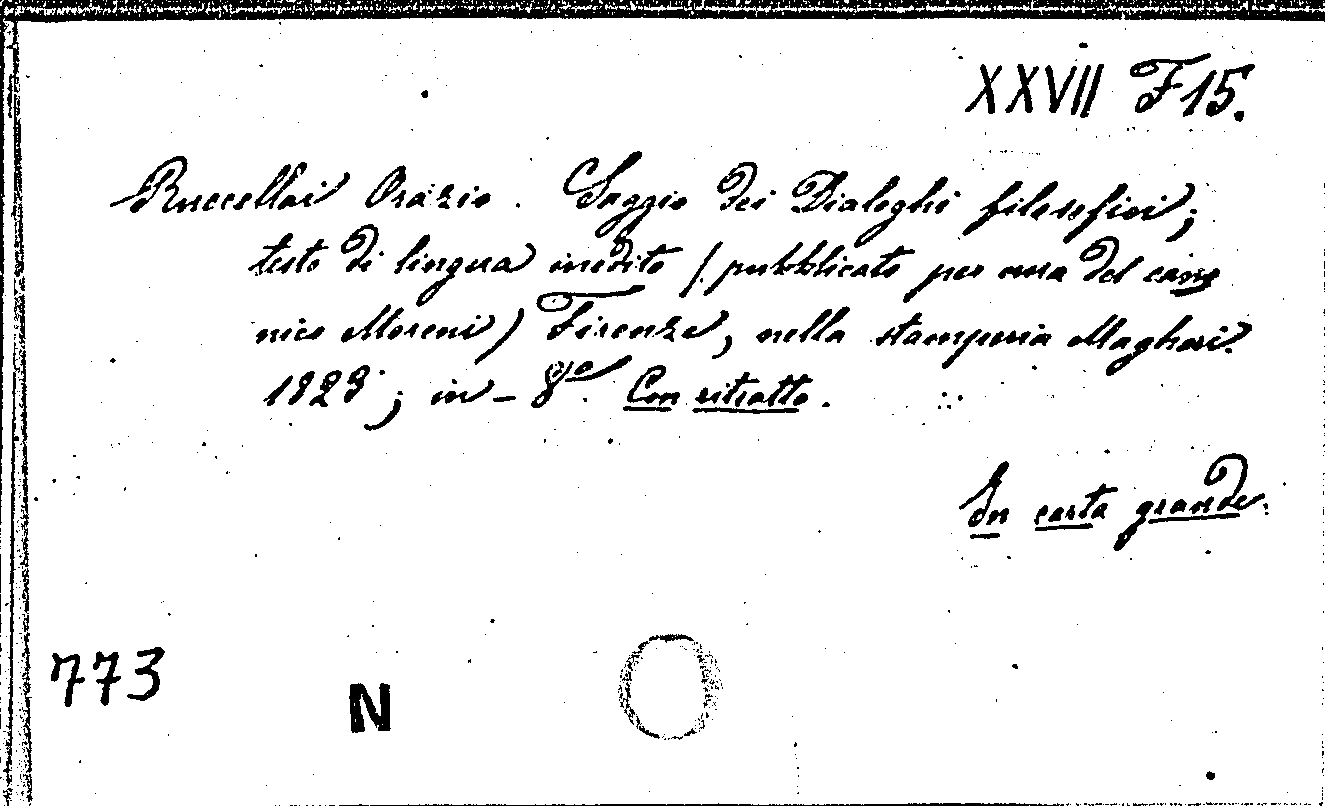 XXVII F 15.
Ruccellai Orazio. Saggio dei Dialoghi filosofici;
testo di lingua inedito (pubblicato per cura del cano
nico Moreni) Firenze, nella stamperia Magheri.
1823; in-8º. Con ritratto.
In carta grande.
773
N